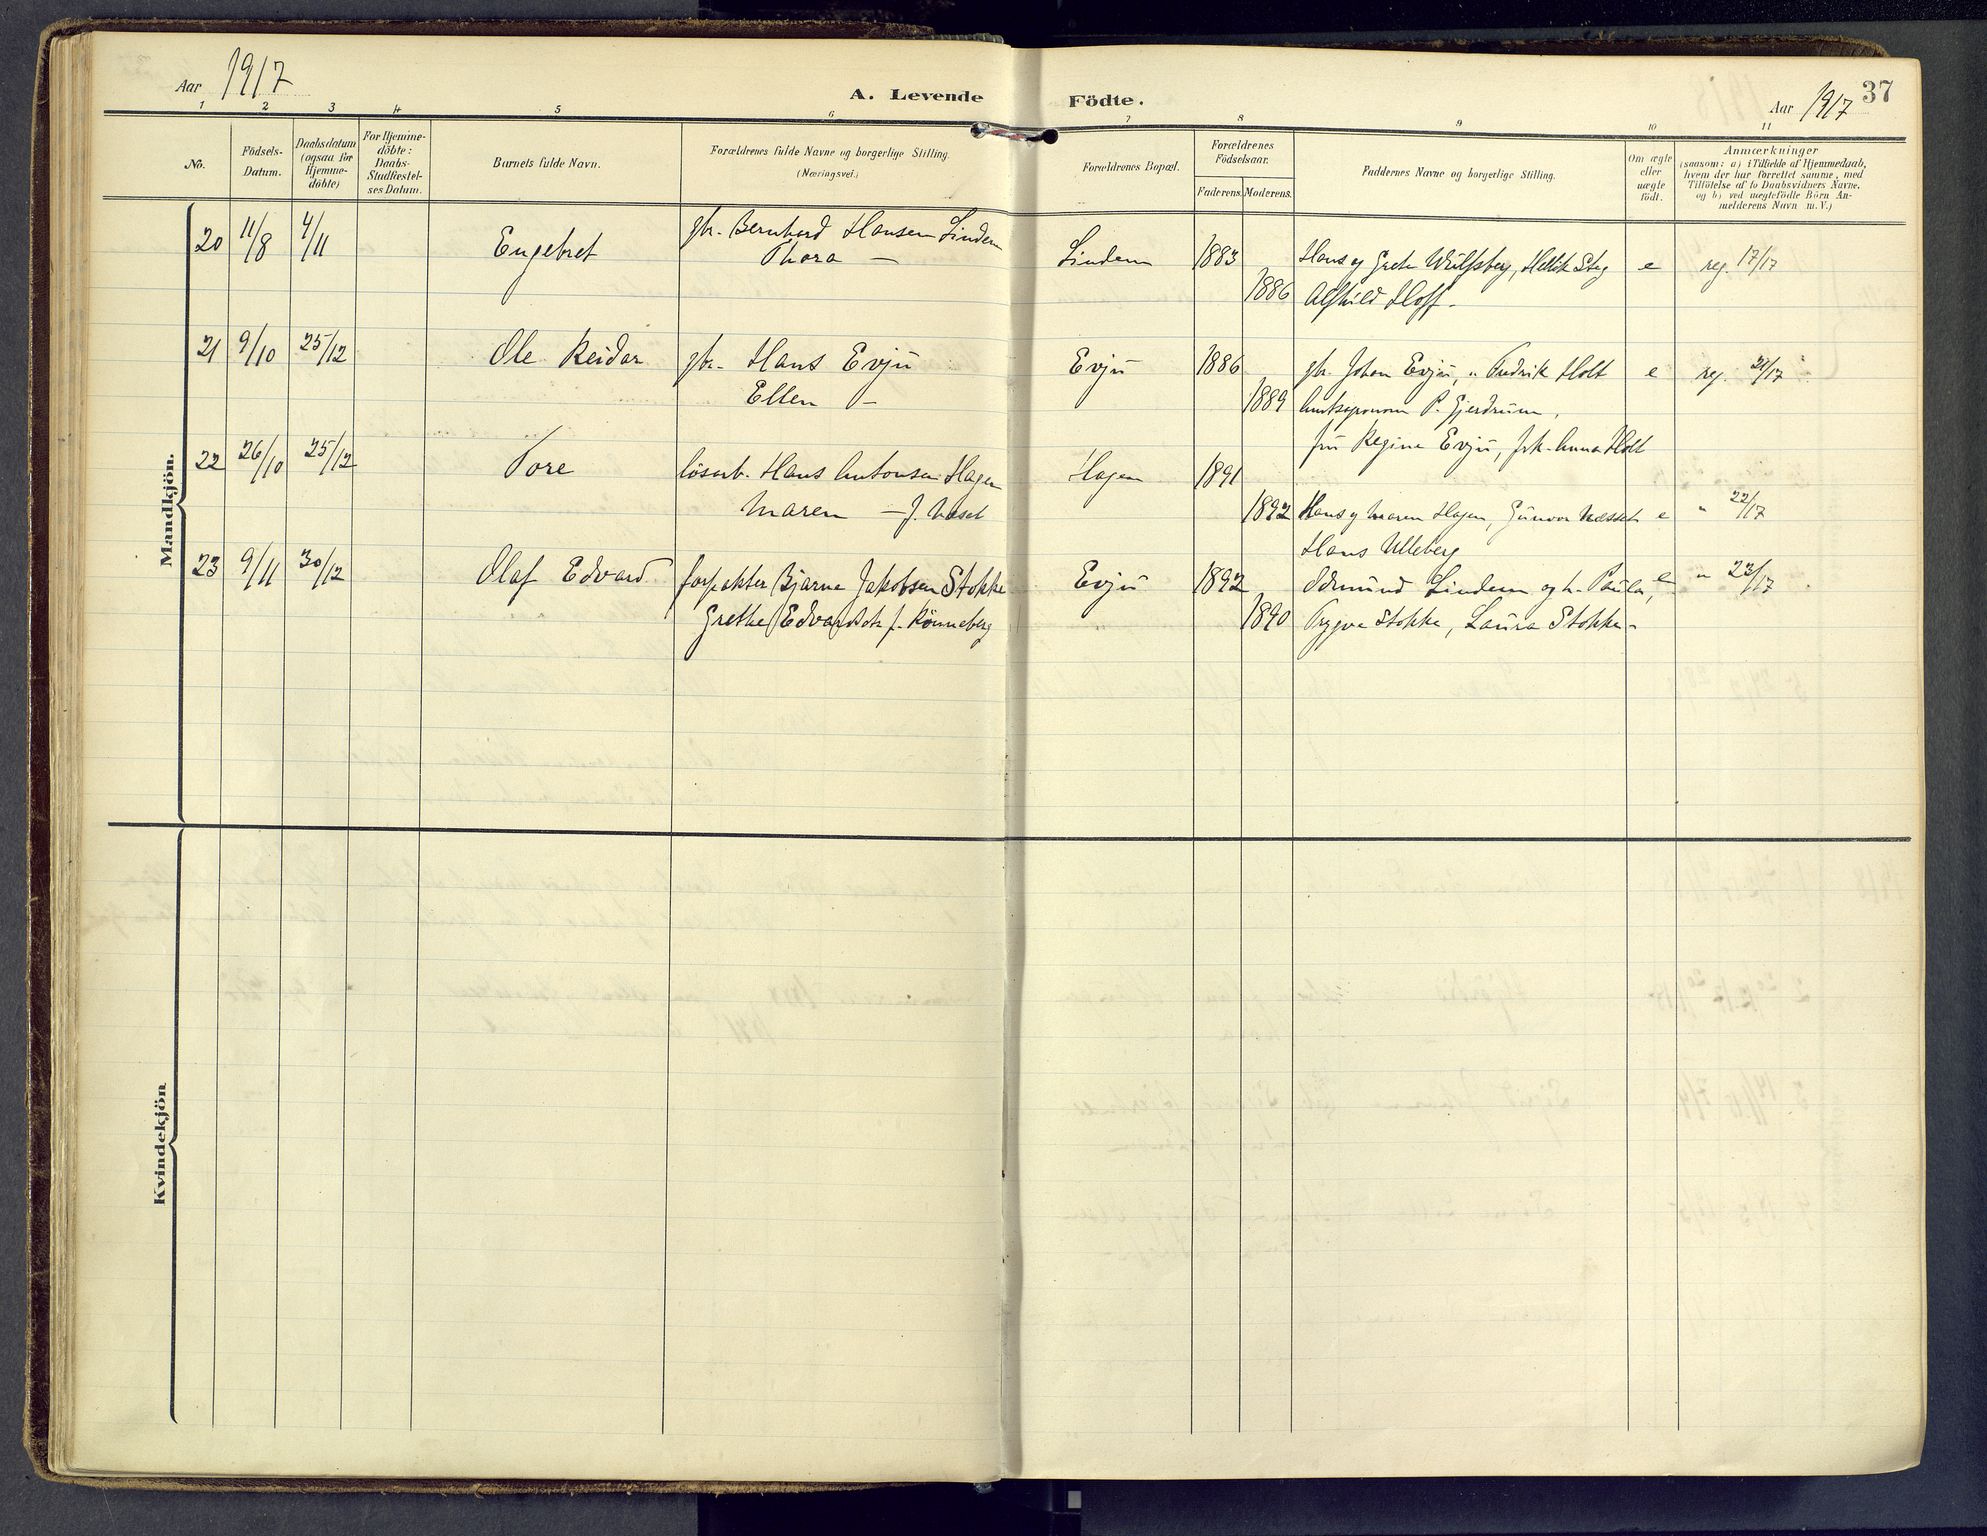 Aar 1917
A. Levende Födte.
Aar 1917
37
1 2 3 4 5 6 7 8 9 10 11
No.
Födsels-
Datum.
Daabsdatum
(ogsaa for
Hjemme-
döbte)
For Hjemme-
döbte:
Daabs-
Stadfæstel-
ses Datum.
Barnets fulde Navn.
Forældrenes fulde Navne og borgerlige Stilling.
(Næringsvei.)
Forældrenes Bopæl.
Forældrenes
Födselsaar.
Faderens. Moderens.
Faddernes Navne og borgerlige Stilling.
Om ægte
eller
uægte
födt.
Anmærkninger
(saasom: a) i Tilfælde af Hjemmedaab,
hvem der har forrettet samme, med
Tilföielse af to Daabsvidners Navne.
og b) ved uægtefödte Börn An-
melderens Navn m. V.)
Mandkjön.
20 11/8 4/11 Engebret gbr. Bernhard Hansen Lindem Lindem 1883 Hans og Grete Wulfsberg, Hellik Steg e reg. 17/17
Thora — 1886 Alfhild Hoff.
21 9/10 25/12 Ole Reidar gbr. Hans Evju Evju 1886 gbr. Johan Evju, " Fredrik Holt e reg. 21/17
Ellen — 1889 Amtsagronom P. Gjerdrum,
fru Regine Evju, frk. Anna Holt
22 26/10 25/12 Tore løsarb. Hans Antonsen Hagen Hagen 1891
Maren — f. Næset 1892 Hans og Maren Hagen, Gunvor Næsset e " 22/17
Hans Ulleberg
23 9/11 30/12 Olaf Edvard forpakter Bjarne Jakobsen Stokke Evju 1892 Odmund Lindem og h. Paula, e " 23/17
Grethe Edvardsdtr f. Rönneberg 1890 Trygve Stokke, Laura Stokke-
Kvindekjön